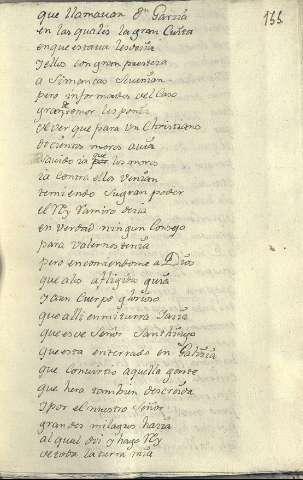 155
que llamauan dn Garcia
en las quales la gran Cinta
en que estaua les decia
y ellos con gran presteza
a Simancas
pero informados del Caso
gran temor les ponia
de ver que para Un Christiano
docientos moros auia
Sauido ya que los moros
ya contra ellos Venian
temiendo Su gran poder
el Rey Ramiro decia
en verdad ningun Consejo
para valernos tenia
pero encomiendome a Dios
que alos afligidos guia
y a un Cuerpo glorioso
que alli en mi tierra
que es de Señor Santhiago
que esta enterrado en Galicia
que convirtio aquella gente
que hera tambien descreida
y por el nuestro Señor
grandes milagros hazia
al qual doi y hago Rey
de toda la tierra mia